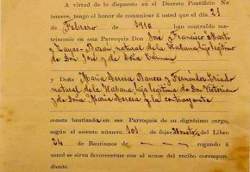 A virtud de lo dispuesto en el Decreto Pontificio Ne
temere, tengo el honor de comunicar á usted que el día 21
de Febrero de 191 han contraído ma-
trimonio en esta Parroquia Don José Francisco Martí
y Zayas-Bazán natural de la Habana hijo legítimo
de Don José y de Doña Carmen
y Doña María Teresa Bances y Fernández Criado
natural de la Habana hija legítima de Don Victoriano
y de Doña María Teresa y la contrayente
consta bautizada en esa Parroquia de su dignísimo cargo,
según el asiento número 101 de fojas del Libro
24 de Bautismos de rogando á usted
se sirva favorecerme con el acuse del recibo correspon-
diente.